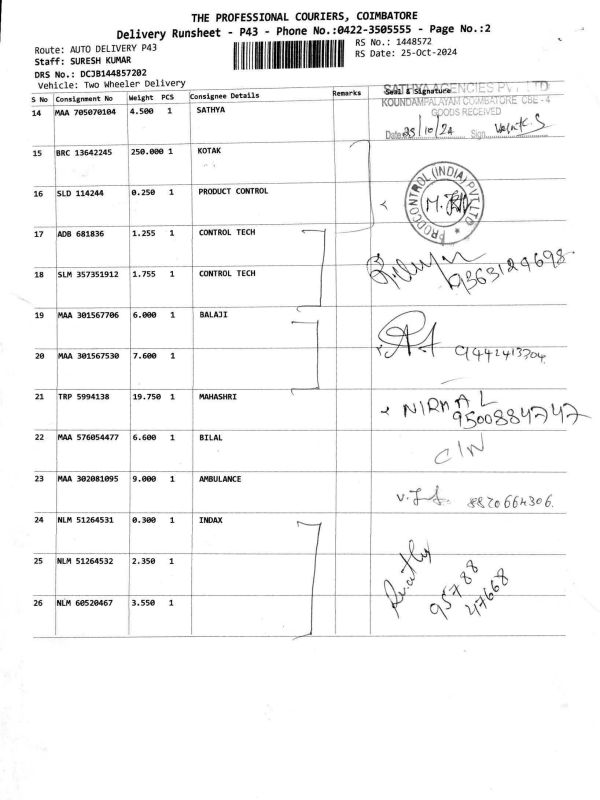 THE PROFESSIONAL COURIERS, COIMBATORE
Delivery Runsheet - P43 - Phone No.:0422-3505555 - Page No.:2
Route: AUTO DELIVERY P43
RS No.: 1448572
Staff: SURESH KUMAR
RS Date: 25-Oct-2024
DRS No.: DCJB144857202
Vehicle: Two Wheeler Delivery
S No Consignment No Weight PCS Consignee Details Remarks Seal & Signature
SATHYA AGENCIES PVT LTD
KOUNDAMPALAYAM COIMBATORE CBE - 4
GOODS RECEIVED
14 MAA 705070104 4.500 1 SATHYA
Date 25/10/24 Sign
15 BRC 13642245 250.000 1 KOTAK
16 SLD 114244 0.250 1 PRODUCT CONTROL
PRODCONTROL (INDIA) PVT LTD
17 ADB 681836 1.255 1 CONTROL TECH
18 SLM 357351912 1.755 1 CONTROL TECH
9363129698
19 MAA 301567706 6.000 1 BALAJI
20 MAA 301567530 7.600 1
9442413304
21 TRP 5994138 19.750 1 MAHASHRI
NIRMAL
9500884747
22 MAA 576054477 6.600 1 BILAL
C/N
23 MAA 302081095 9.000 1 AMBULANCE
8870664306
24 NLM 51264531 0.300 1 INDAX
25 NLM 51264532 2.350 1
95788
47668
26 NLM 60520467 3.550 1